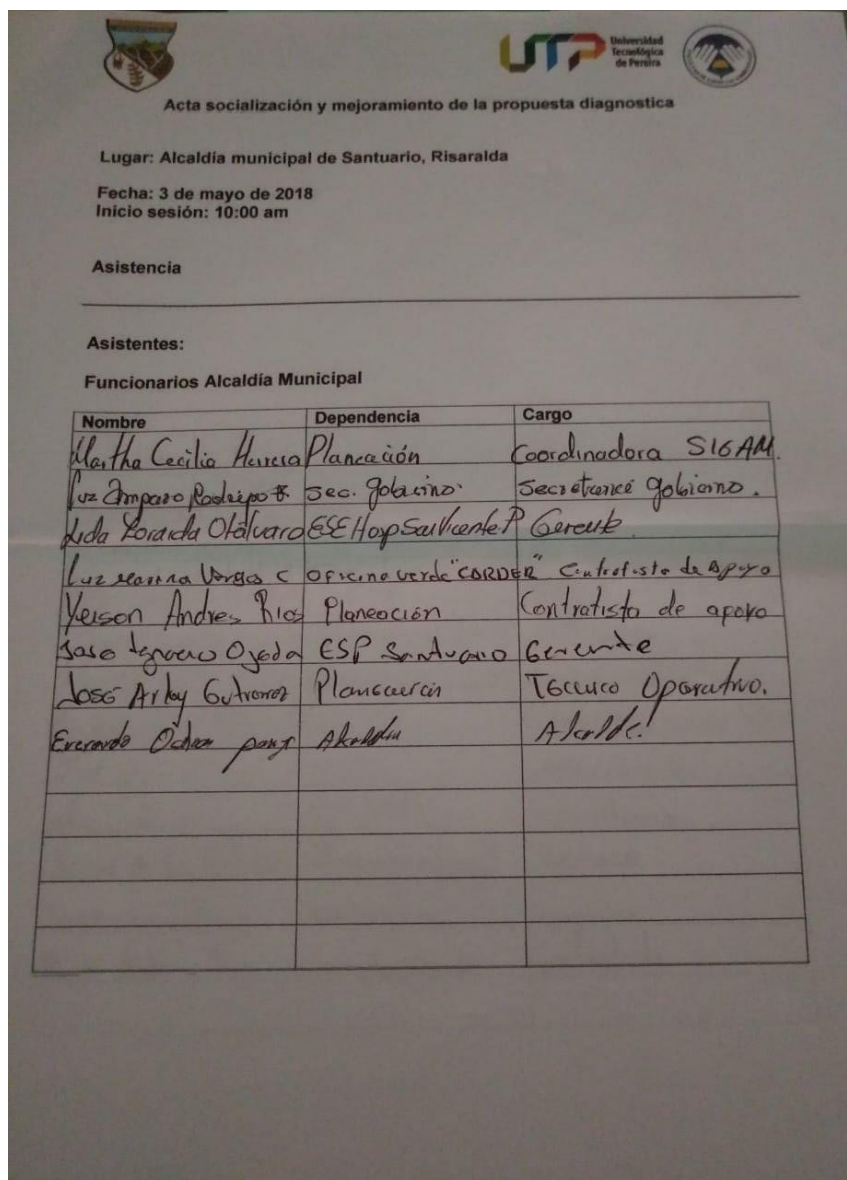 UTP Universidad
Tecnológica
de Pereira
Acta socialización y mejoramiento de la propuesta diagnostica
Lugar: Alcaldía municipal de Santuario, Risaralda
Fecha: 3 de mayo de 2018
Inicio sesión: 10:00 am
Asistencia
Asistentes:
Funcionarios Alcaldía Municipal
Nombre Dependencia Cargo
Martha Cecilia Herrera Planeación Coordinadora SIGAM.
Luz Amparo Sec. Gobierno. Gobierno.
Lida Otálvaro ESE Hosp San Vicente P Gerente
Luz Marina Vargas C Oficina verde "CARDER" Contratista de Apoyo
Yeison Andres Rios Planeación Contratista de apoyo
Jose Ignacio Ojeda ESP Santuario Gerente
José Arley Planeación Técnico Operativo.
Everardo Ochoa Alcaldía Alcalde!